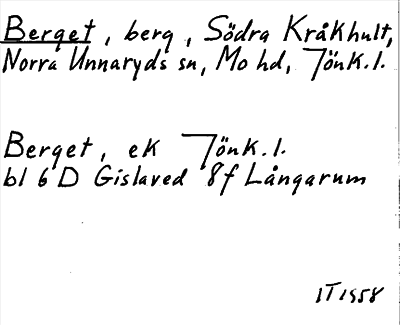 Berget, berg, Södra Kråkhult,
Norra Unnaryds sn, Mo hd, Jönk.l.
Berget, ek Jönk.l.
bl 6 D Gislaved 8f Långarum
IT 1958